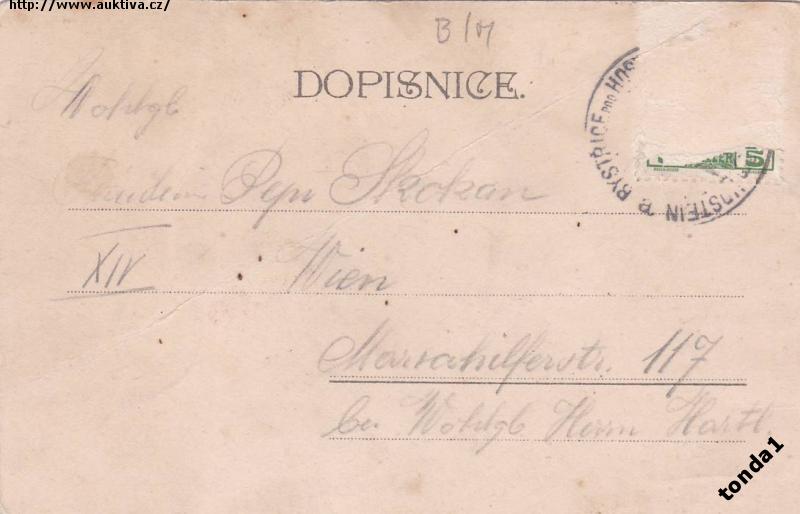 http://www.auktiva.cz/
B/M
DOPISNICE.
Wohlgb
Fräulein Pepi Skokan
XIV Wien
Mariahilferstr. 117
bei Wohlgb Herrn Hartl.
BYSTŘICE POD HOS
HOSTEIN
5
tonda1